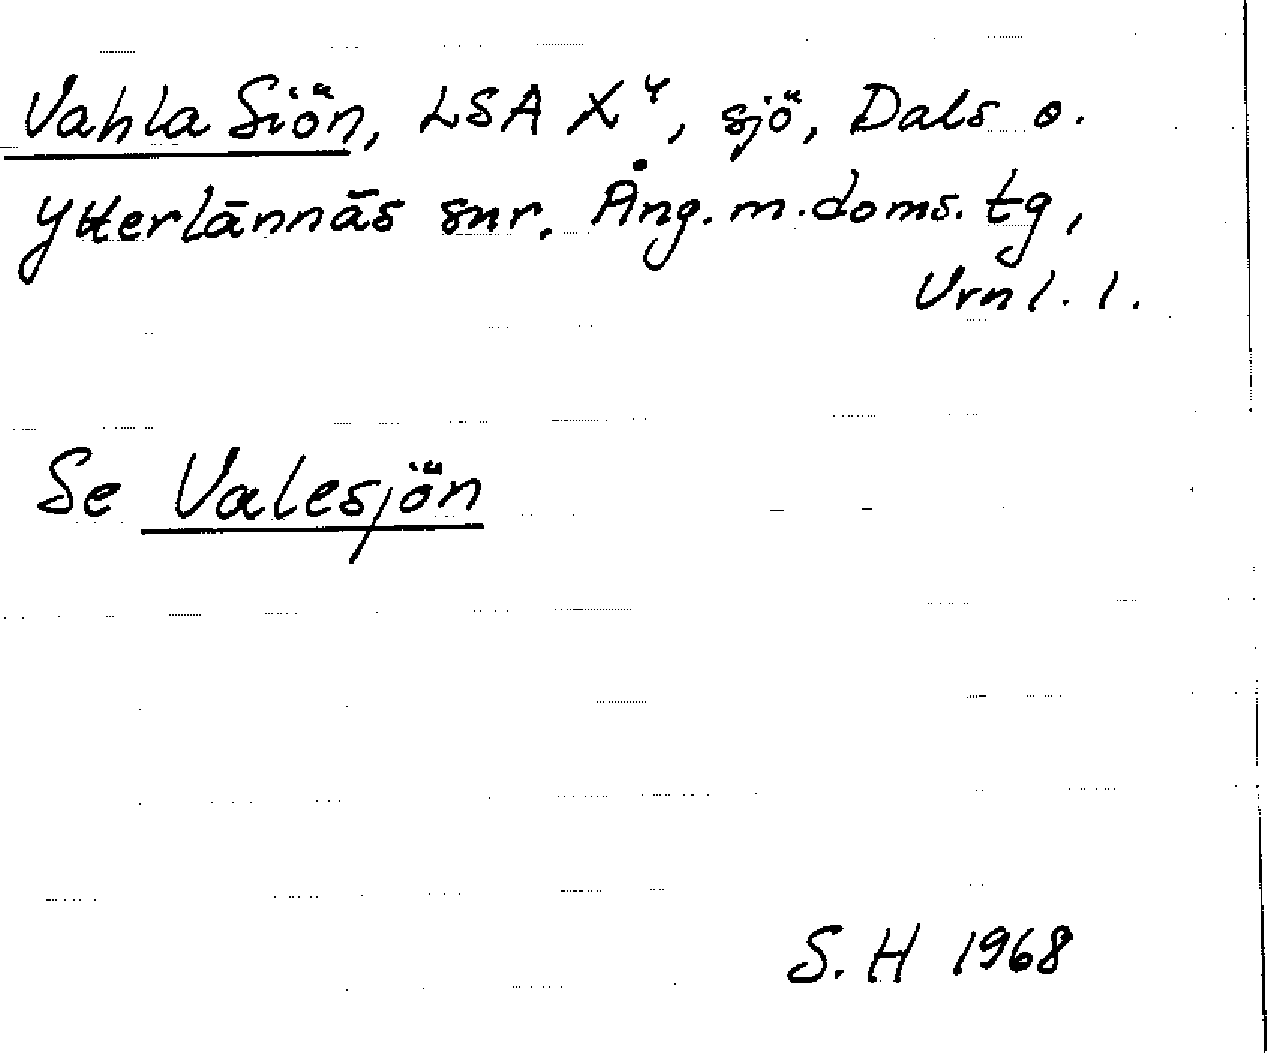 Vahla Siön, LSA X⁴, sjö, Dals o.
Ytterlännäs snr. Ång. m. doms. tg,
Vrnl. l.
Se Valesjön
S. H 1968